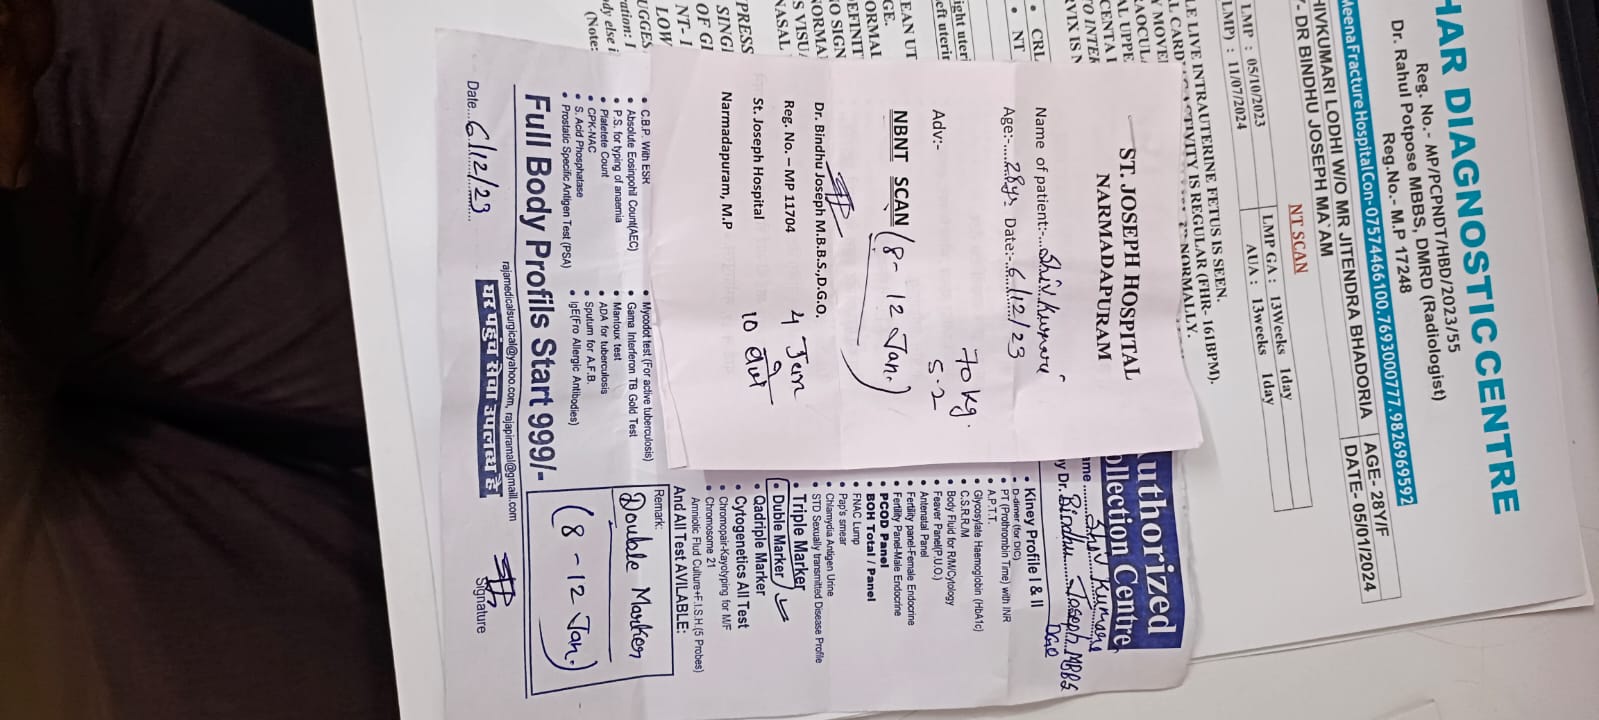 HAR DIAGNOSTIC CENTRE
Reg. No.- MP/PCPNDT/HBD/2023/55
Dr. Rahul Potpose MBBS, DMRD (Radiologist)
Reg.No.- M.P 17248
Meena Fracture Hospital Con- 07574466100.7693000777.9826969592
HIVKUMARI LODHI W/O MR JITENDRA BHADORIA AGE- 28Y/F
Y- DR BINDHU JOSEPH MA'AM DATE- 05/01/2024
NT SCAN
LMP : 05/10/2023 LMP GA : 13Weeks 1day
LMP) : 11/07/2024 AUA : 13weeks 1day
LE LIVE INTRAUTERINE FETUS IS SEEN.
L CARD ACTIVITY IS REGULAR (FHR- 161BPM).
Y MOVE NORMALLY.
AL UPPE
RAOCUL
CENTA I
TO INTER
RVIX IS N
CRL
NT
ight uteri
eft uterin
EAN UT
GE.
ORMAL
DEFINIT
O SIGN
NORMA
S VISU
NASAL
PRESS
SINGL
OF GI
NT- 1
LOW
UGGES
ration: I
dy else i
(Note:
ST. JOSEPH HOSPITAL
NARMADAPURAM
Name of patient:-...Shiv Kumari
Age:-......28yr Date:-...6/12/23
70 kg.
Adv:- 5.2
NBNT SCAN (8 - 12 Jan.)
Dr. Bindhu Joseph M.B.B.S.,D.G.O.
Reg. No. – MP 11704
St. Joseph Hospital
Narmadapuram, M.P
uthorized
ollection Centre
ame ......Shiv Kumari
y Dr. Bindhu Joseph MBBS
DGO
• Kiney Profile I & II
• D-dimer (for DIC)
• PT(Prothrombin Time) with INR
• A.P.T.T.
• Glycosylate Haemoglobin (HbA1c)
• C.S.R.R/M
• Body Fluid for R/M/Cytology
• Feaver Panel(P.U.O.)
• Antenatal Panel
• Fertility panel-Female Endocrine
• Fertility Panel-Male Endocrine
• PCOD Panel
• BOH Total / Panel
• FNAC Lump
• Pap's smear
• Chlamydia Antigen Urine
• STD Sexually transmitted Disease Profile
• Triple Marker
• Duble Marker
• Qadriple Marker
• Cytogenetics All Test
• Chromopair-Kayolyping for M/F
• Chromosome 21
Amniotic Flud Culture+F.I.S.H.(5 Probes)
And All Test AVILABLE:
• C.B.P. With ESR
• Absolute Eosinpohil Count(AEC)
• P.S. for typing of anaemia
• Platelete Count
• CPK-NAC
• S. Acid Phosphatase
• Prostatic Specific Antigen Test (PSA)
• Mycodot test (For active tuberculosis)
• Gama Interferon TB Gold Test
• Mantoux test
• ADA for tuberculosis
• Sputum for A.F.B.
• IgE(Fro Allergic Antibodies)
Remark:
Double Marker
(8 - 12 Jan.)
Full Body Profils Start 999/-
rajamedicalsurgical@yahoo.com, rajapiramal@gmaill.com
घर पहुंच सेवा उपलब्ध है
Date...6/12/23
Signature